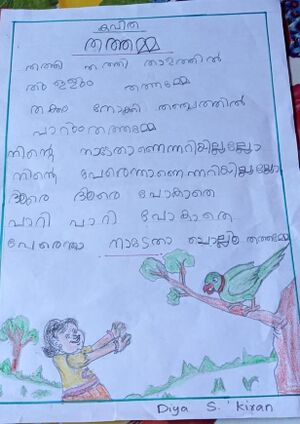 കവിത
തത്തമ്മ
തത്തി തത്തി താളത്തിൽ
തുള്ളും തത്തമ്മേ
തക്കം നോക്കി തഞ്ചത്തിൽ
പാറും തത്തമ്മേ
നിന്റെ നാടേതാണെന്നറിയില്ലല്ലോ
നിന്റെ പേരെന്താണെന്നറിയില്ലല്ലോ
ദൂരെ ദൂരെ പോകാതെ
പാറി പാറി പോകാതെ
പേരെന്താ നാടേതാ ചൊല്ലൂ തത്തമ്മേ
Diya S. Kiran